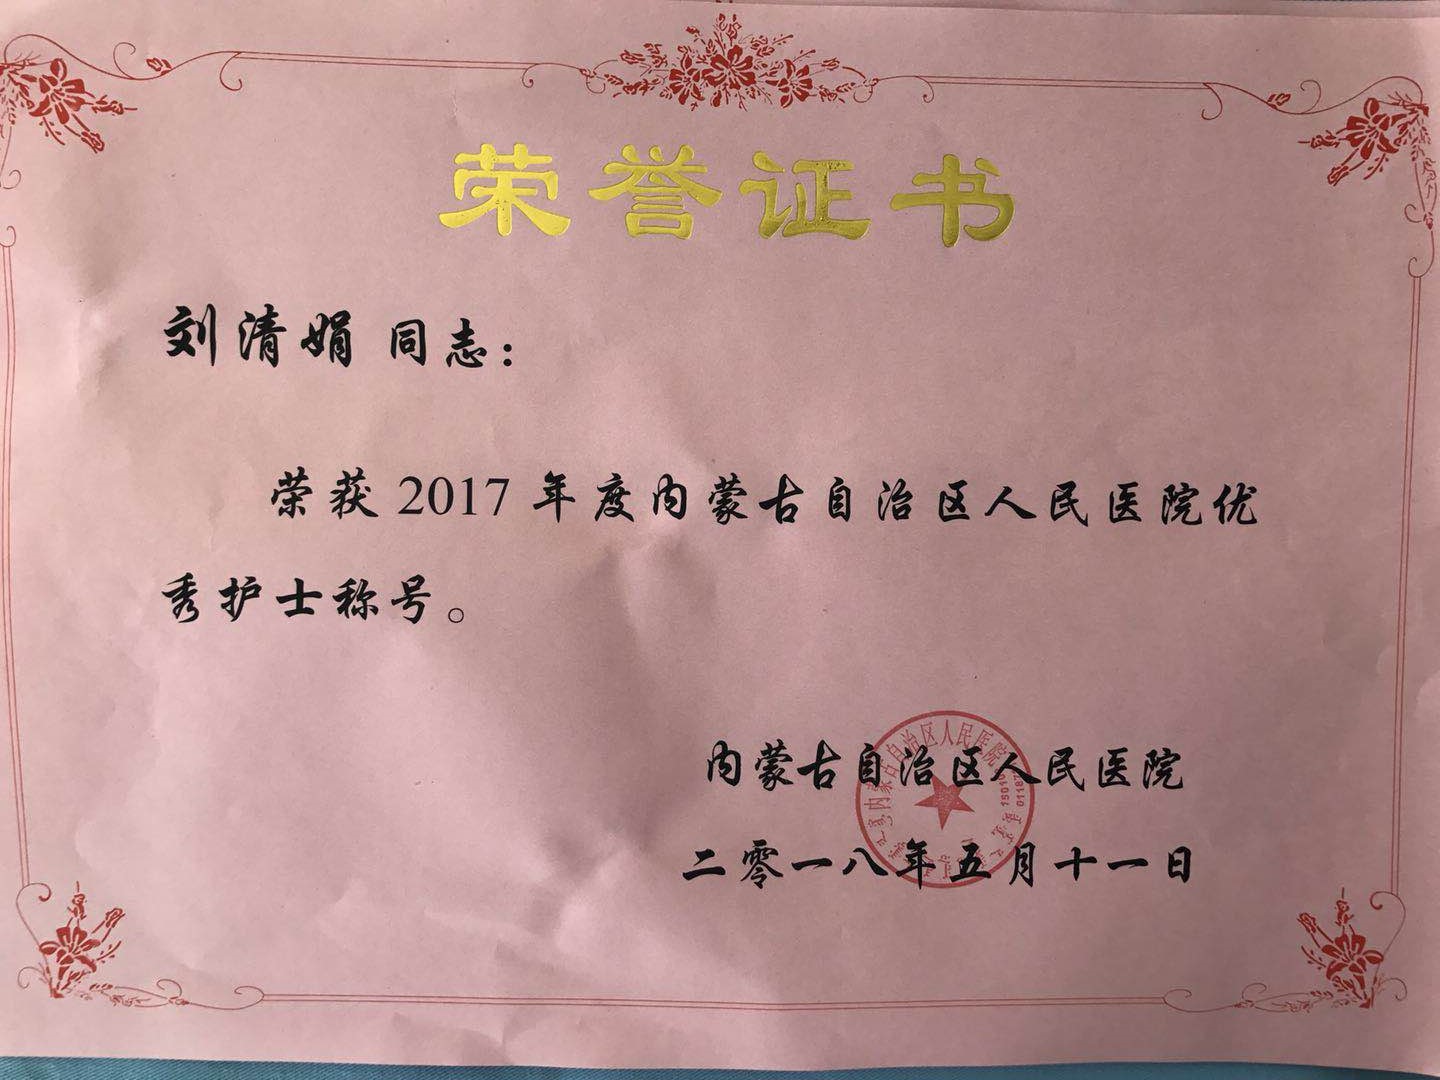 荣誉证书
刘清娟 同志：
荣获 2017 年度内蒙古自治区人民医院优
秀护士称号。
内蒙古自治区人民医院
二零一八年五月十一日
内蒙古自治区人民医院